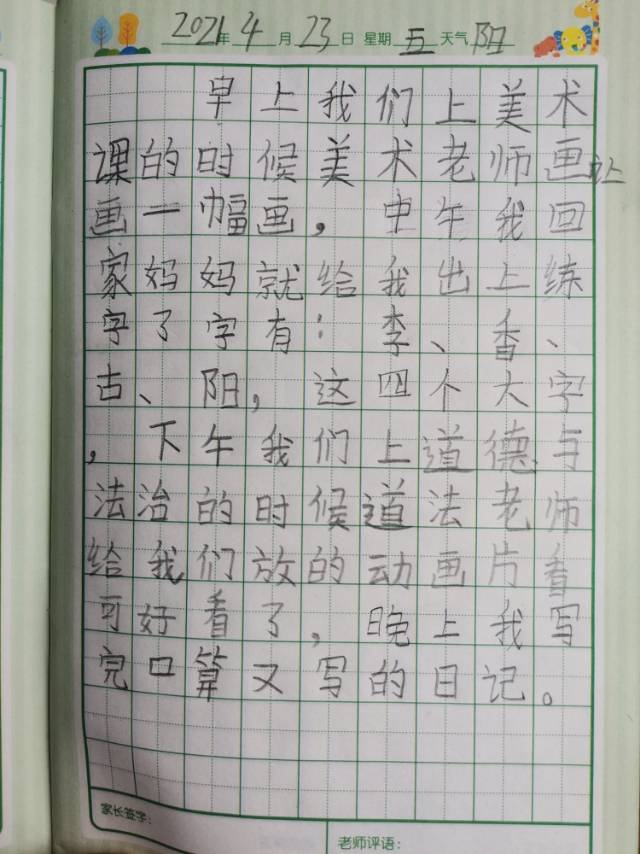 2021年4月23日 星期五天气阳
早上我们上美术
课的时候美术老师画上
画一幅画，中午我回
家妈妈就给我出上练
字了字有：李、香、
古、阳，这四个大字
，下午我们上道德与
法治的时候道法老师
给我们放的动画片看
可好看了，晚上我写
完口算又写的日记。
家长签字：
老师评语：